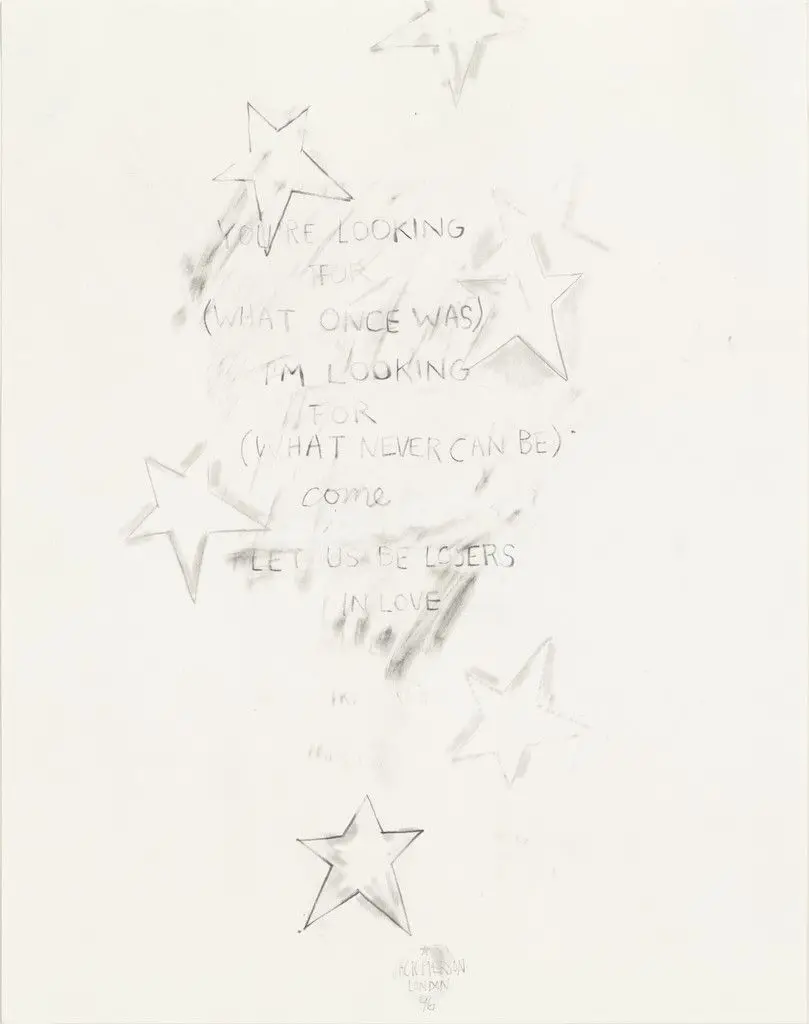 YOU'RE LOOKING
FOR
(WHAT ONCE WAS)
I'M LOOKING
FOR
(WHAT NEVER CAN BE)
come
LET US BE LOSERS
IN LOVE
LONDON
96